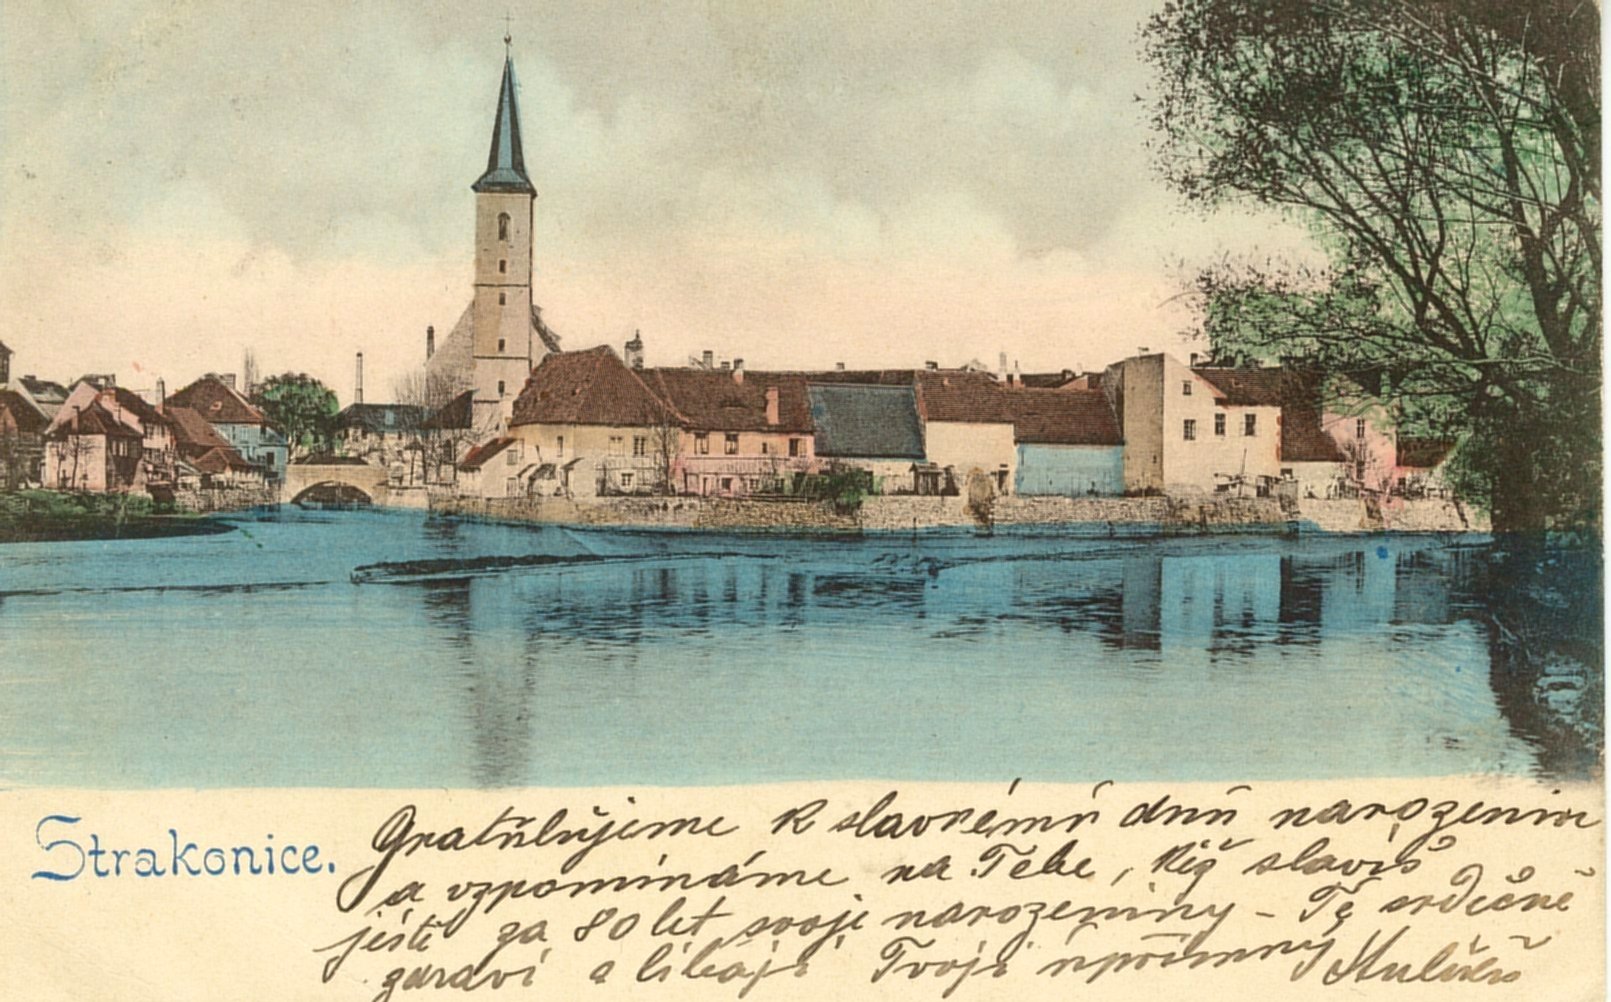 Strakonice.
Gratulujeme k slavnému dnu narozenin
a vzpomínáme na Tebe, kéž slavíš
ještě za 80 let svoje narozeniny – Tě srdečně
zdraví a líbají Tvoji upřímný